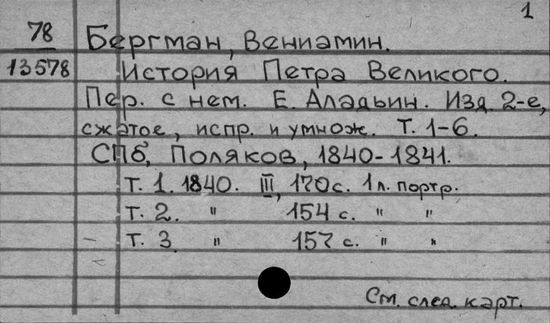 1
78 Бергман, Вениамин.
13578 История Петра Великого.
Пер. с нем. Е. Аладьин. Изд. 2-е,
сжатое, испр. и умнож. Т. 1-6.
СПб, Поляков, 1840-1841.
Т. 1. 1840. III, 170с. 1 л. портр.
Т. 2. " 154 с. " "
Т. 3 " 157 с. " "
См. след. карт.